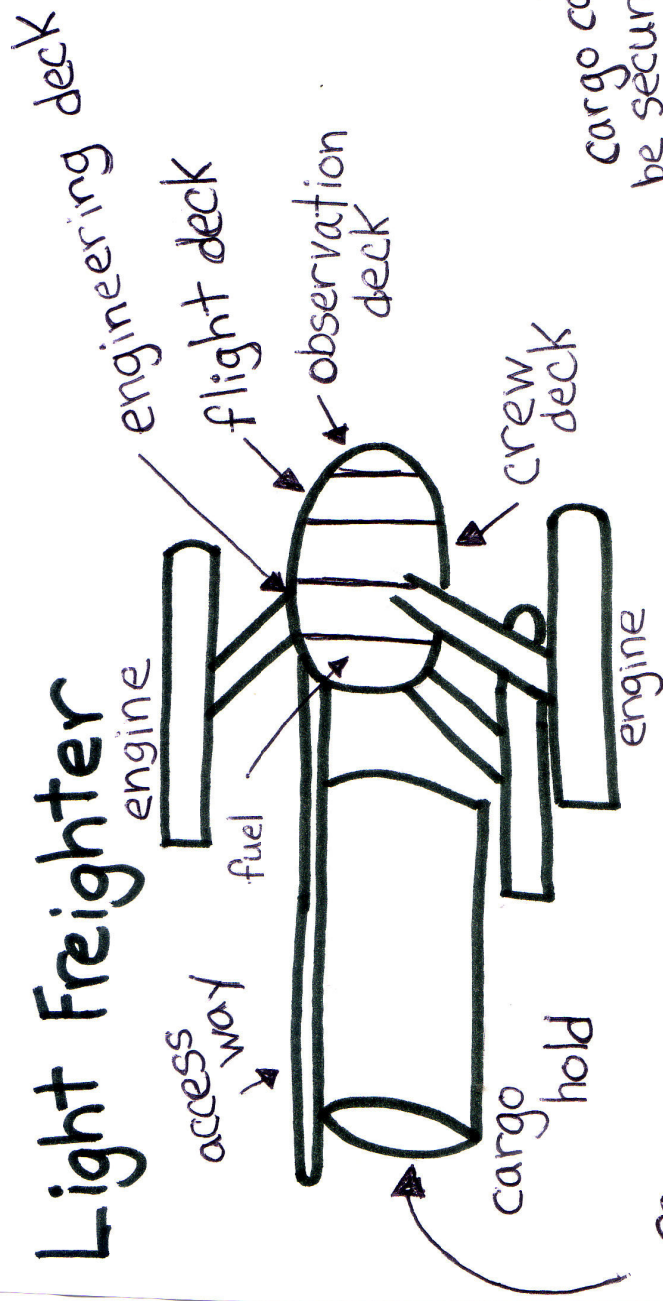 Light Freighter
engine
access
way
fuel
engineering deck
flight deck
observation
deck
crew
deck
cargo
hold
engine
cargo
be